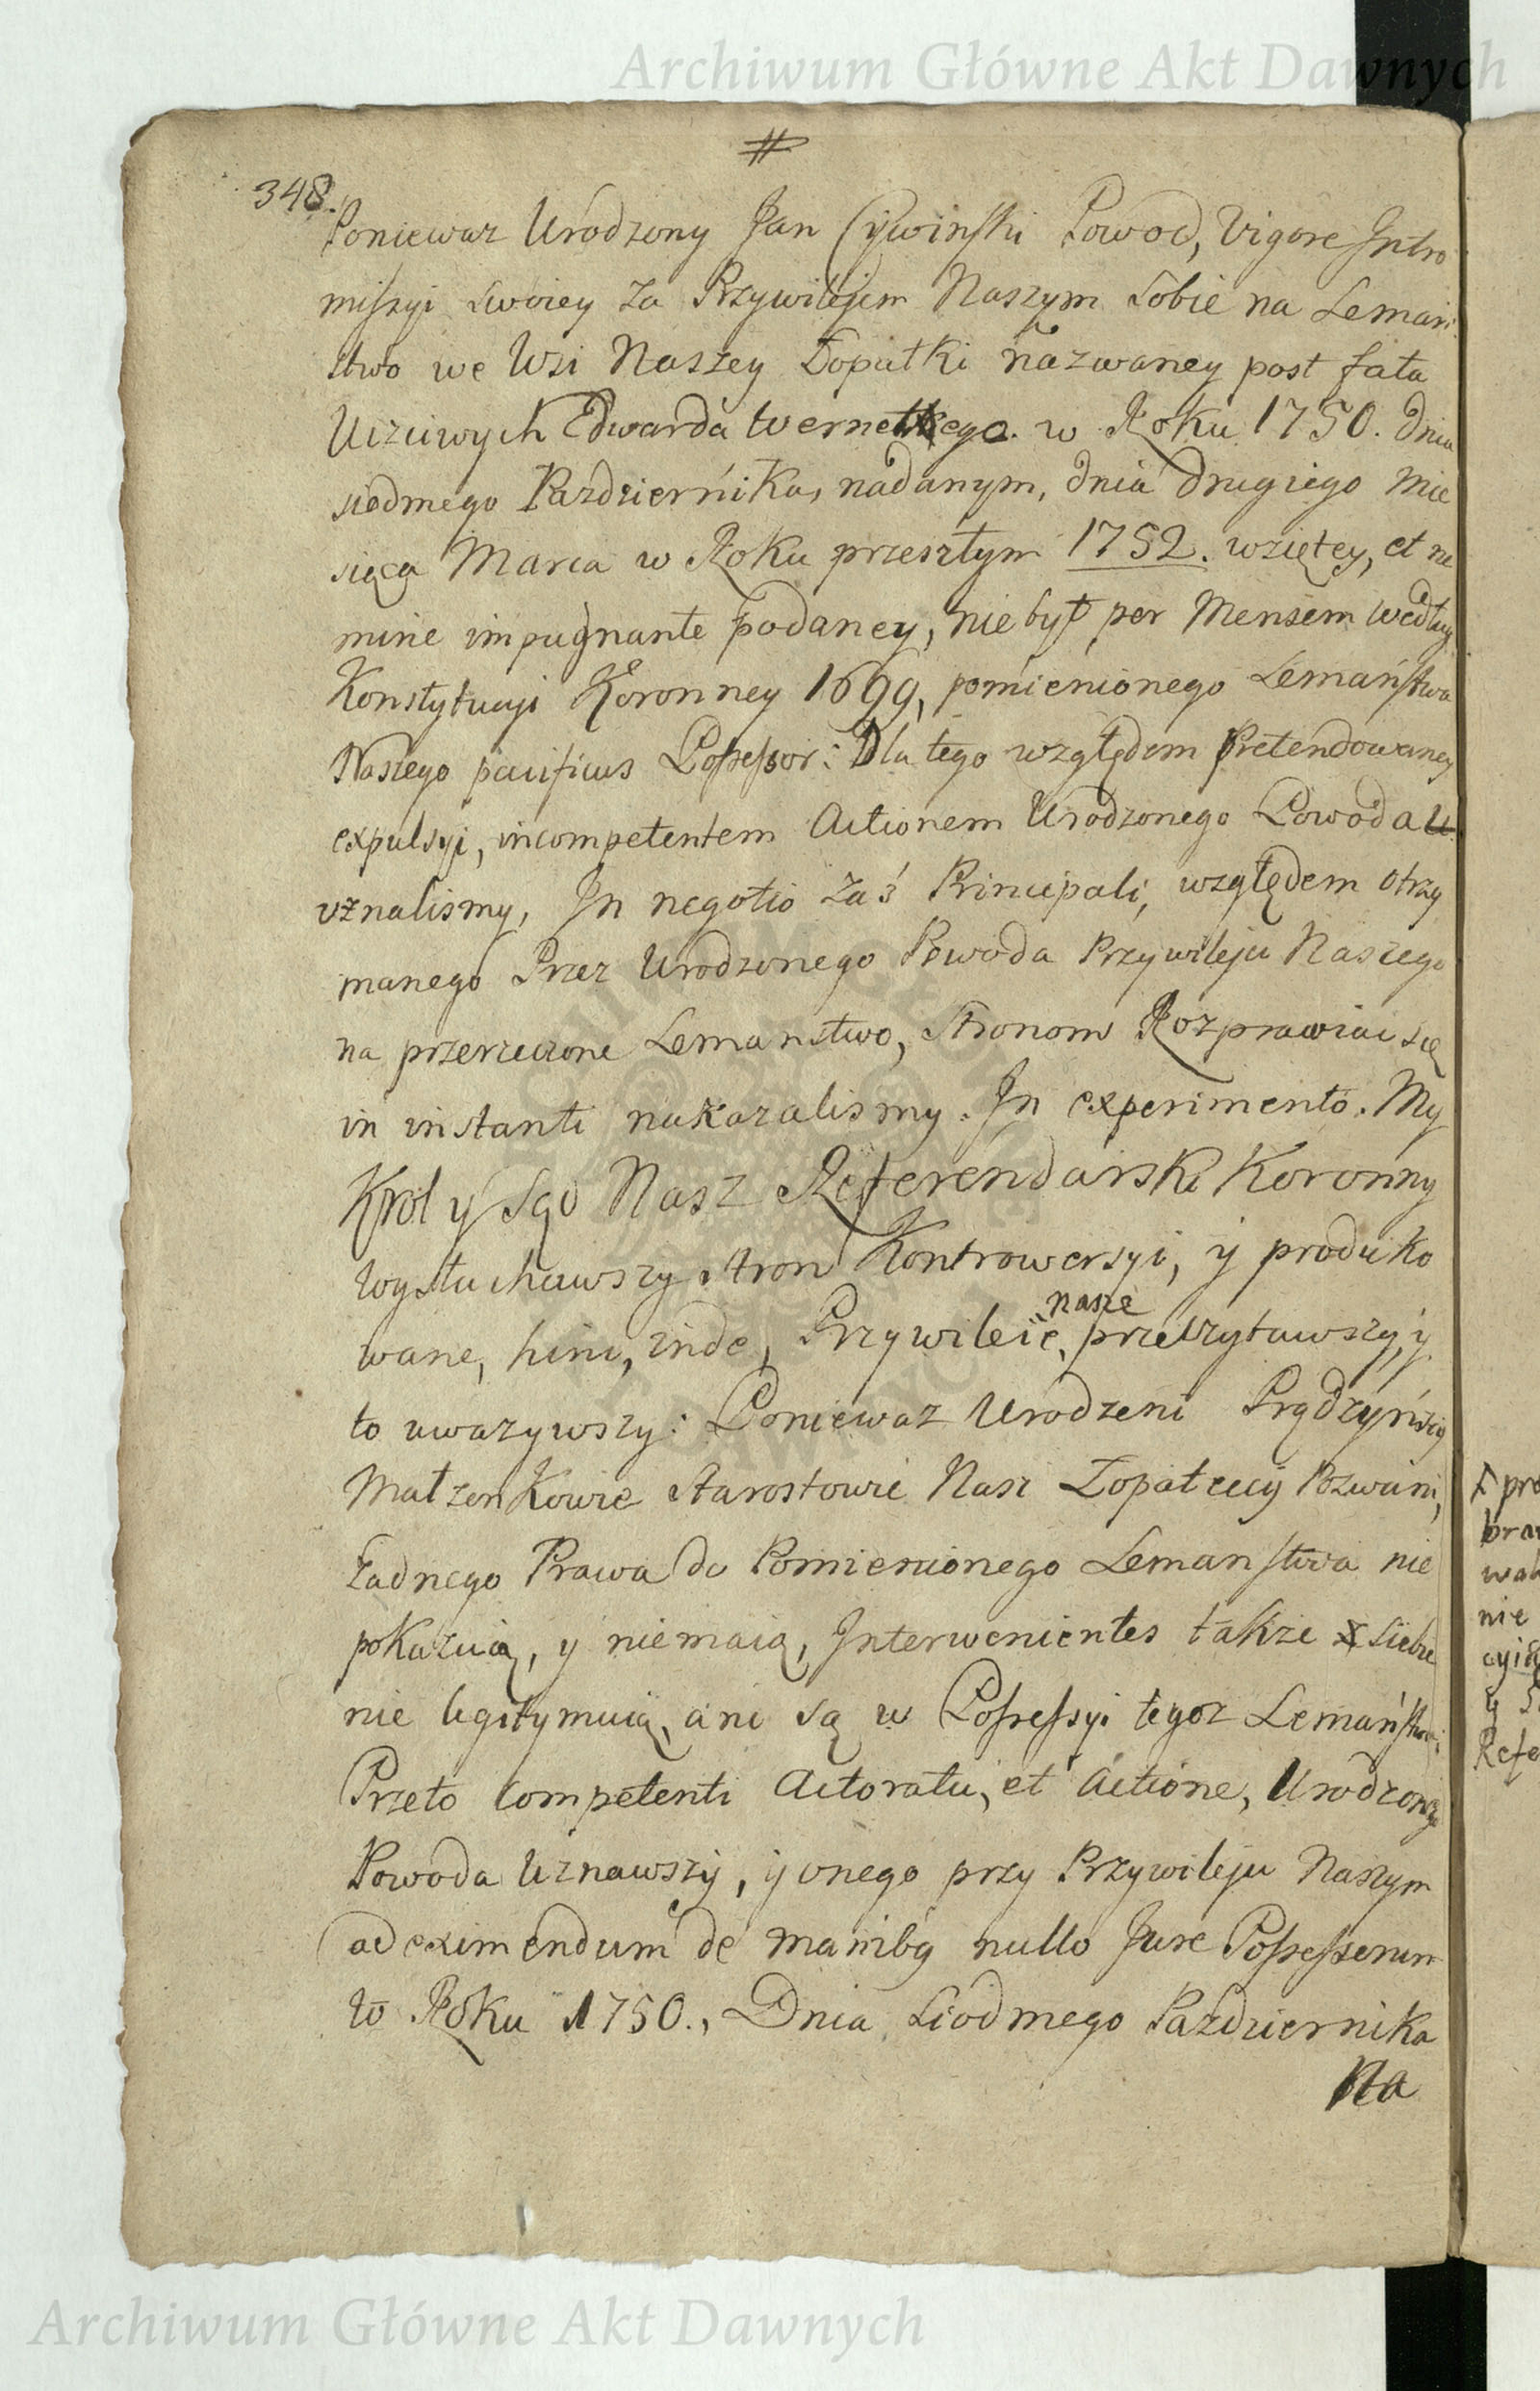 Archiwum Główne Akt Dawnych
#
348.
Poniewaz Urodzony Jan Cywinski Powod, Vigore Intro
missyi swoiey za Przywilejem Naszym sobie na Leman
stwo we Wsi Naszey Łopatki nazwaney post fata
Uczciwych Edwarda Wernetkego. w Roku 1750. dnia
siodmego Pazdziernika, nadanym, dnia drugiego Mie
siąca Marca w Roku przeszłym 1752. wziętey, et ne
mine impugnante podaney, nie był per Mensem według
Konstytucyi Koronney 1699, pomienionego Lemaństwa
Naszego pacificus Possessor: Dla tego względem pretendowaney
expulsyi, incompetentem Actionem Urodzonego Powoda
uznalismy, In negotio zaś Principali, względem otrzy
manego Przez Urodzonego Powoda Przywileju Naszego
na przerzeczone Lemanstwo, Stronom Rozprawiac się
in instanti nakazalismy. In experimento. My
Krol y Sąd Nasz Referendarski Koronny
wysłuchawszy stron Kontrowersyi, y produko
wane, hinc, inde, Przywileie nasze przeczytawszy, y
to uwazywszy: Poniewaz Urodzeni Prądzyńscy
Małzonkowie Starostowie Nasi Łopatcecy Pozwani,
Zadnego Prawa do Pomienionego Lemanstwa nie
pokazuią, y niemaią, Interwenientes także x siebie
nie legitymuią, ani są w Possessyi tegoz Lemaństwa;
Przeto competenti Actoratu, et Actione, Urodzonego
Powoda Uznawszy, y onego przy Przywileju Naszym
ad eximendum de manibg nullo Jure Possessorum
w Roku 1750., Dnia Siodmego Pazdziernika
Na
x pro
bra
wal
nie
cyi
y S
Refe
Archiwum Główne Akt Dawnych